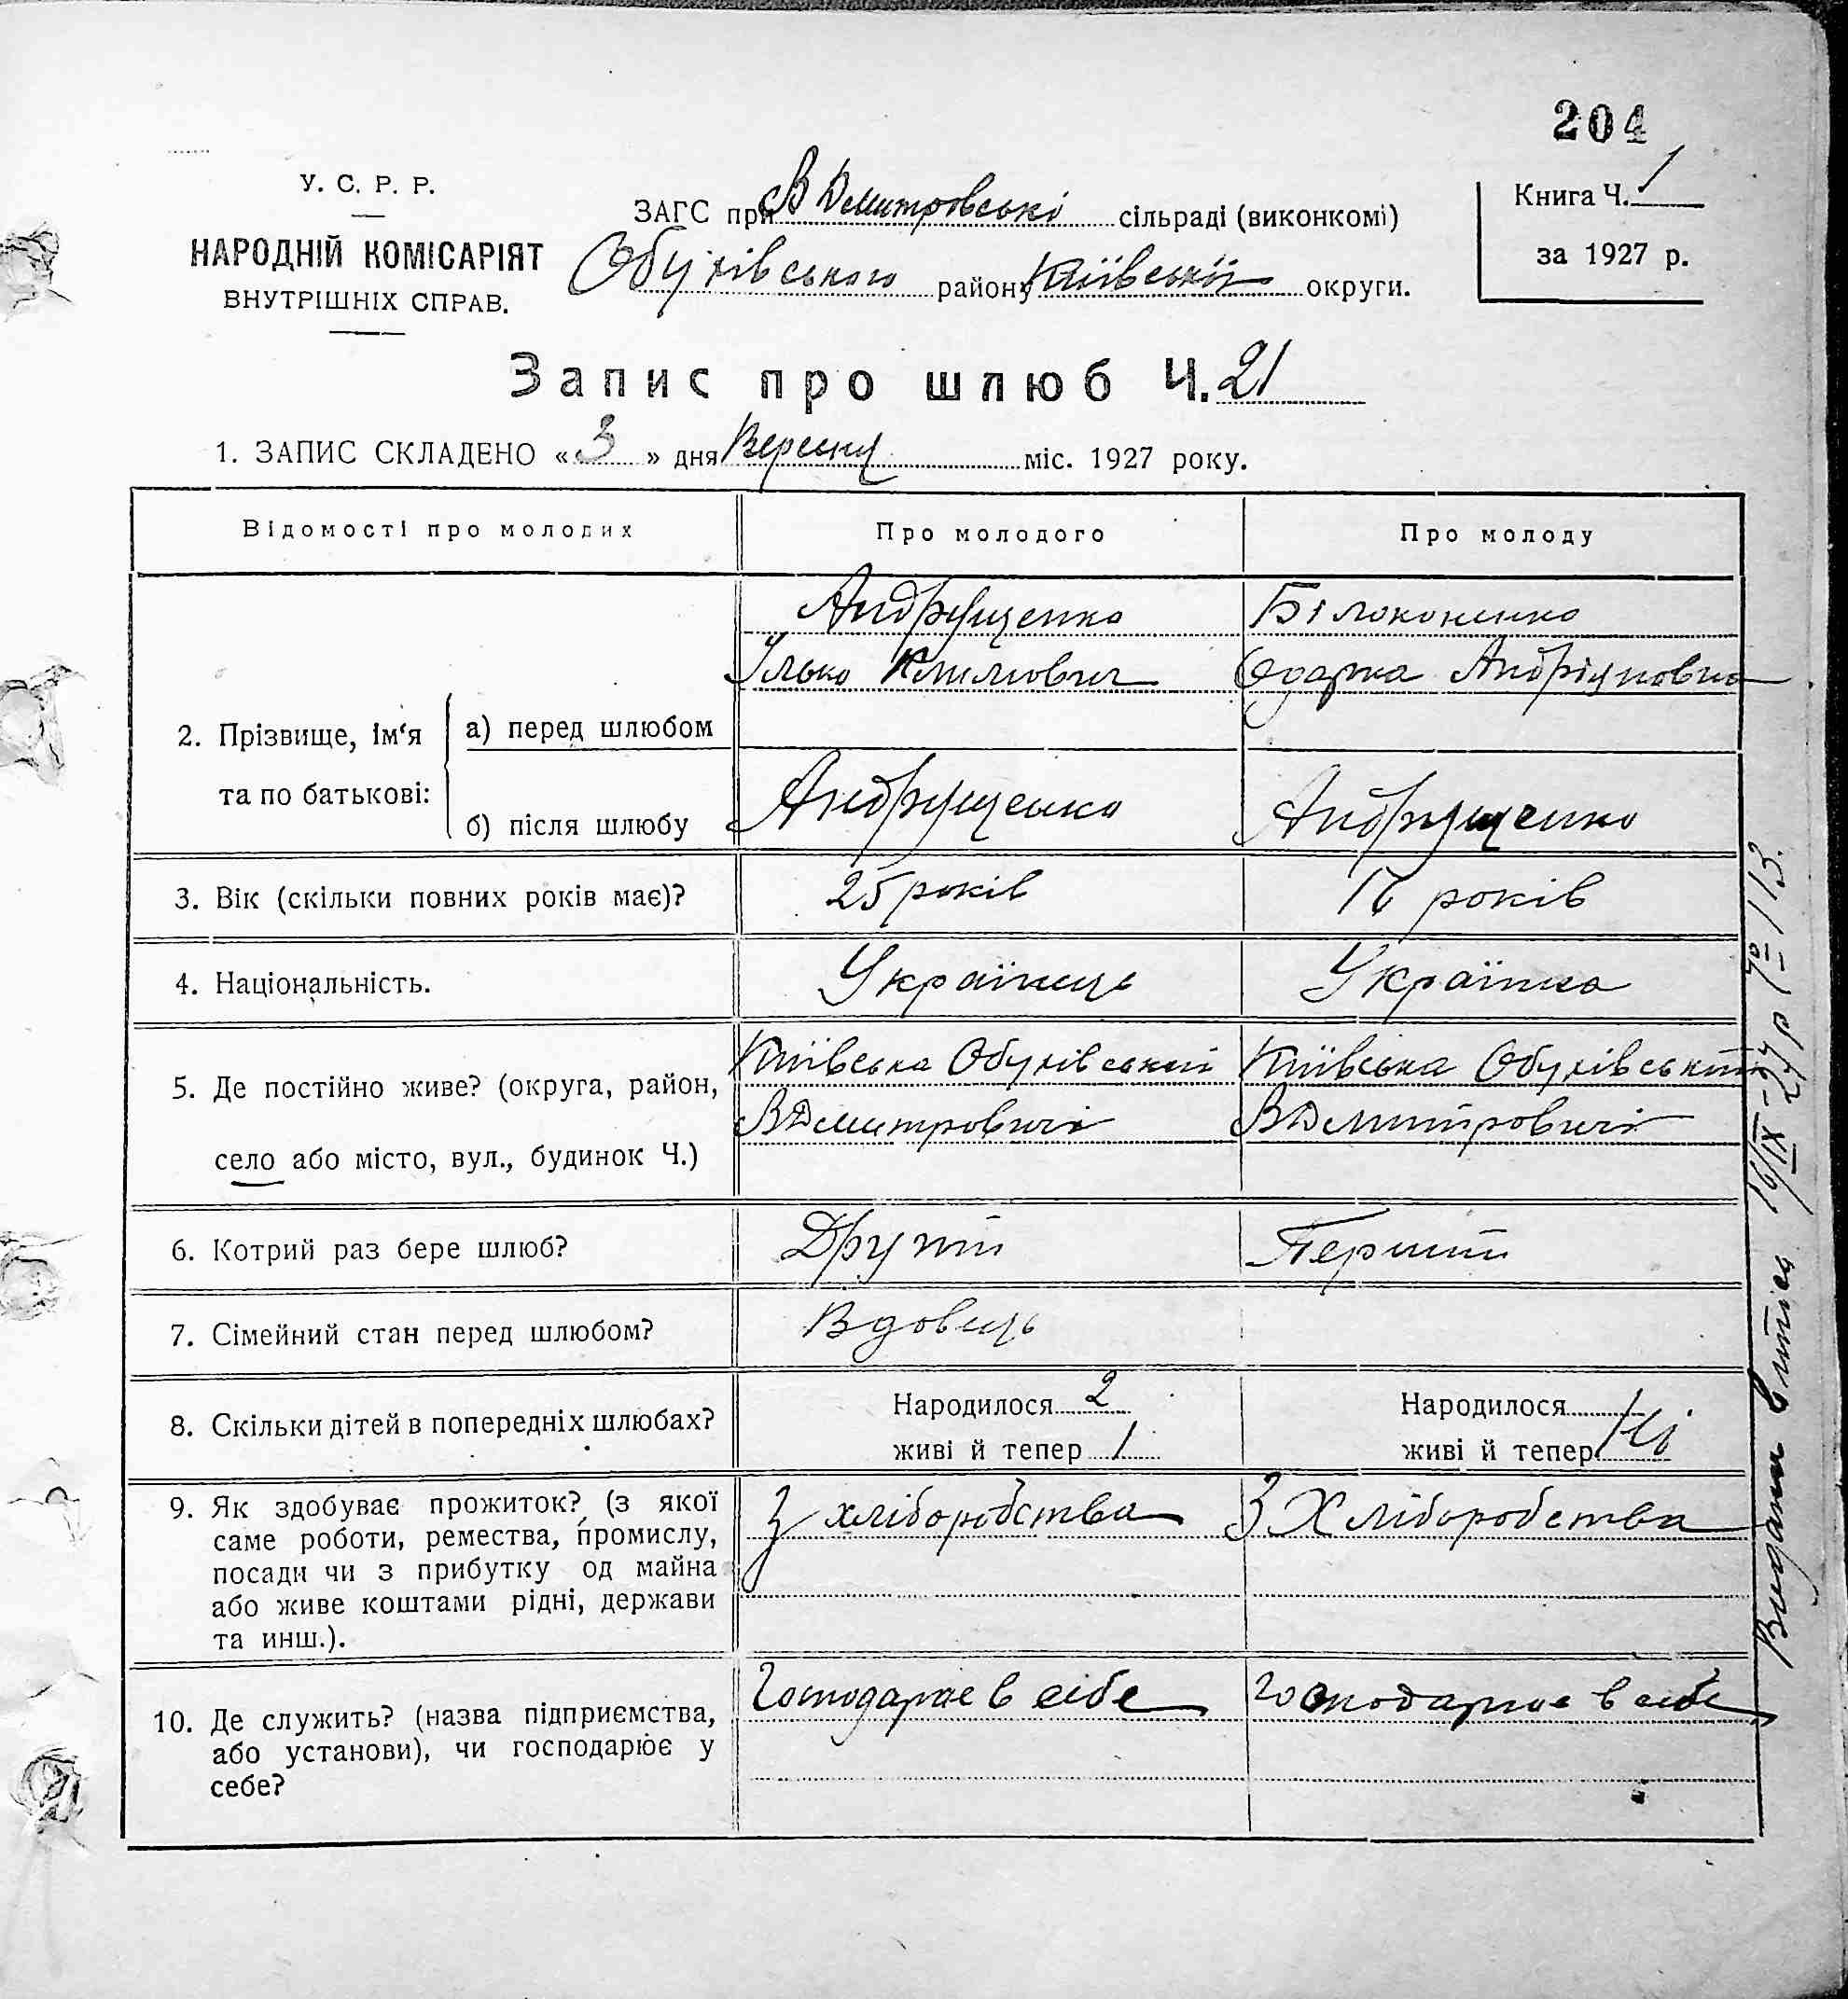 204
У. С. Р. Р.
НАРОДНІЙ КОМІСАРІЯТ
ВНУТРІШНІХ СПРАВ.
ЗАГС при В Дмитровські сільраді (виконкомі)
Обухівського району Київської округи.
Книга Ч. 1
за 1927 р.
Запис про шлюб Ч. 21
1. ЗАПИС СКЛАДЕНО «3» дня Вересня міс. 1927 року.
Відомості про молодих Про молодого Про молоду
2. Прізвище, ім‘я та по батькові:
а) перед шлюбом
Андрущенко
Ілько Климович
Білоконенко
Одарка Андріяновна
б) після шлюбу
Андрущенко Андрущенко
3. Вік (скільки повних років має)? 25 років років
4. Національність. Українець Українка
5. Де постійно живе? (округа, район,
село або місто, вул., будинок Ч.)
Київська Обухівський
ВДмитровичі
Київська Обухівський
ВДмитровичі
6. Котрий раз бере шлюб? Другий Перший
7. Сімейний стан перед шлюбом? Вдовець
8. Скільки дітей в попередніх шлюбах?
Народилося 2
живі й тепер 1
Народилося
живі й тепер Ні
9. Як здобуває прожиток? (з якої
саме роботи, ремества, промислу,
посади чи з прибутку од майна
або живе коштами рідні, держави
та инш.).
З хліборобства
З Хліборобства
10. Де служить? (назва підприємства,
або установи), чи господарює у
себе?
Господарює в себе
Господарює в себе
Видати витяг 16/IX-27 р